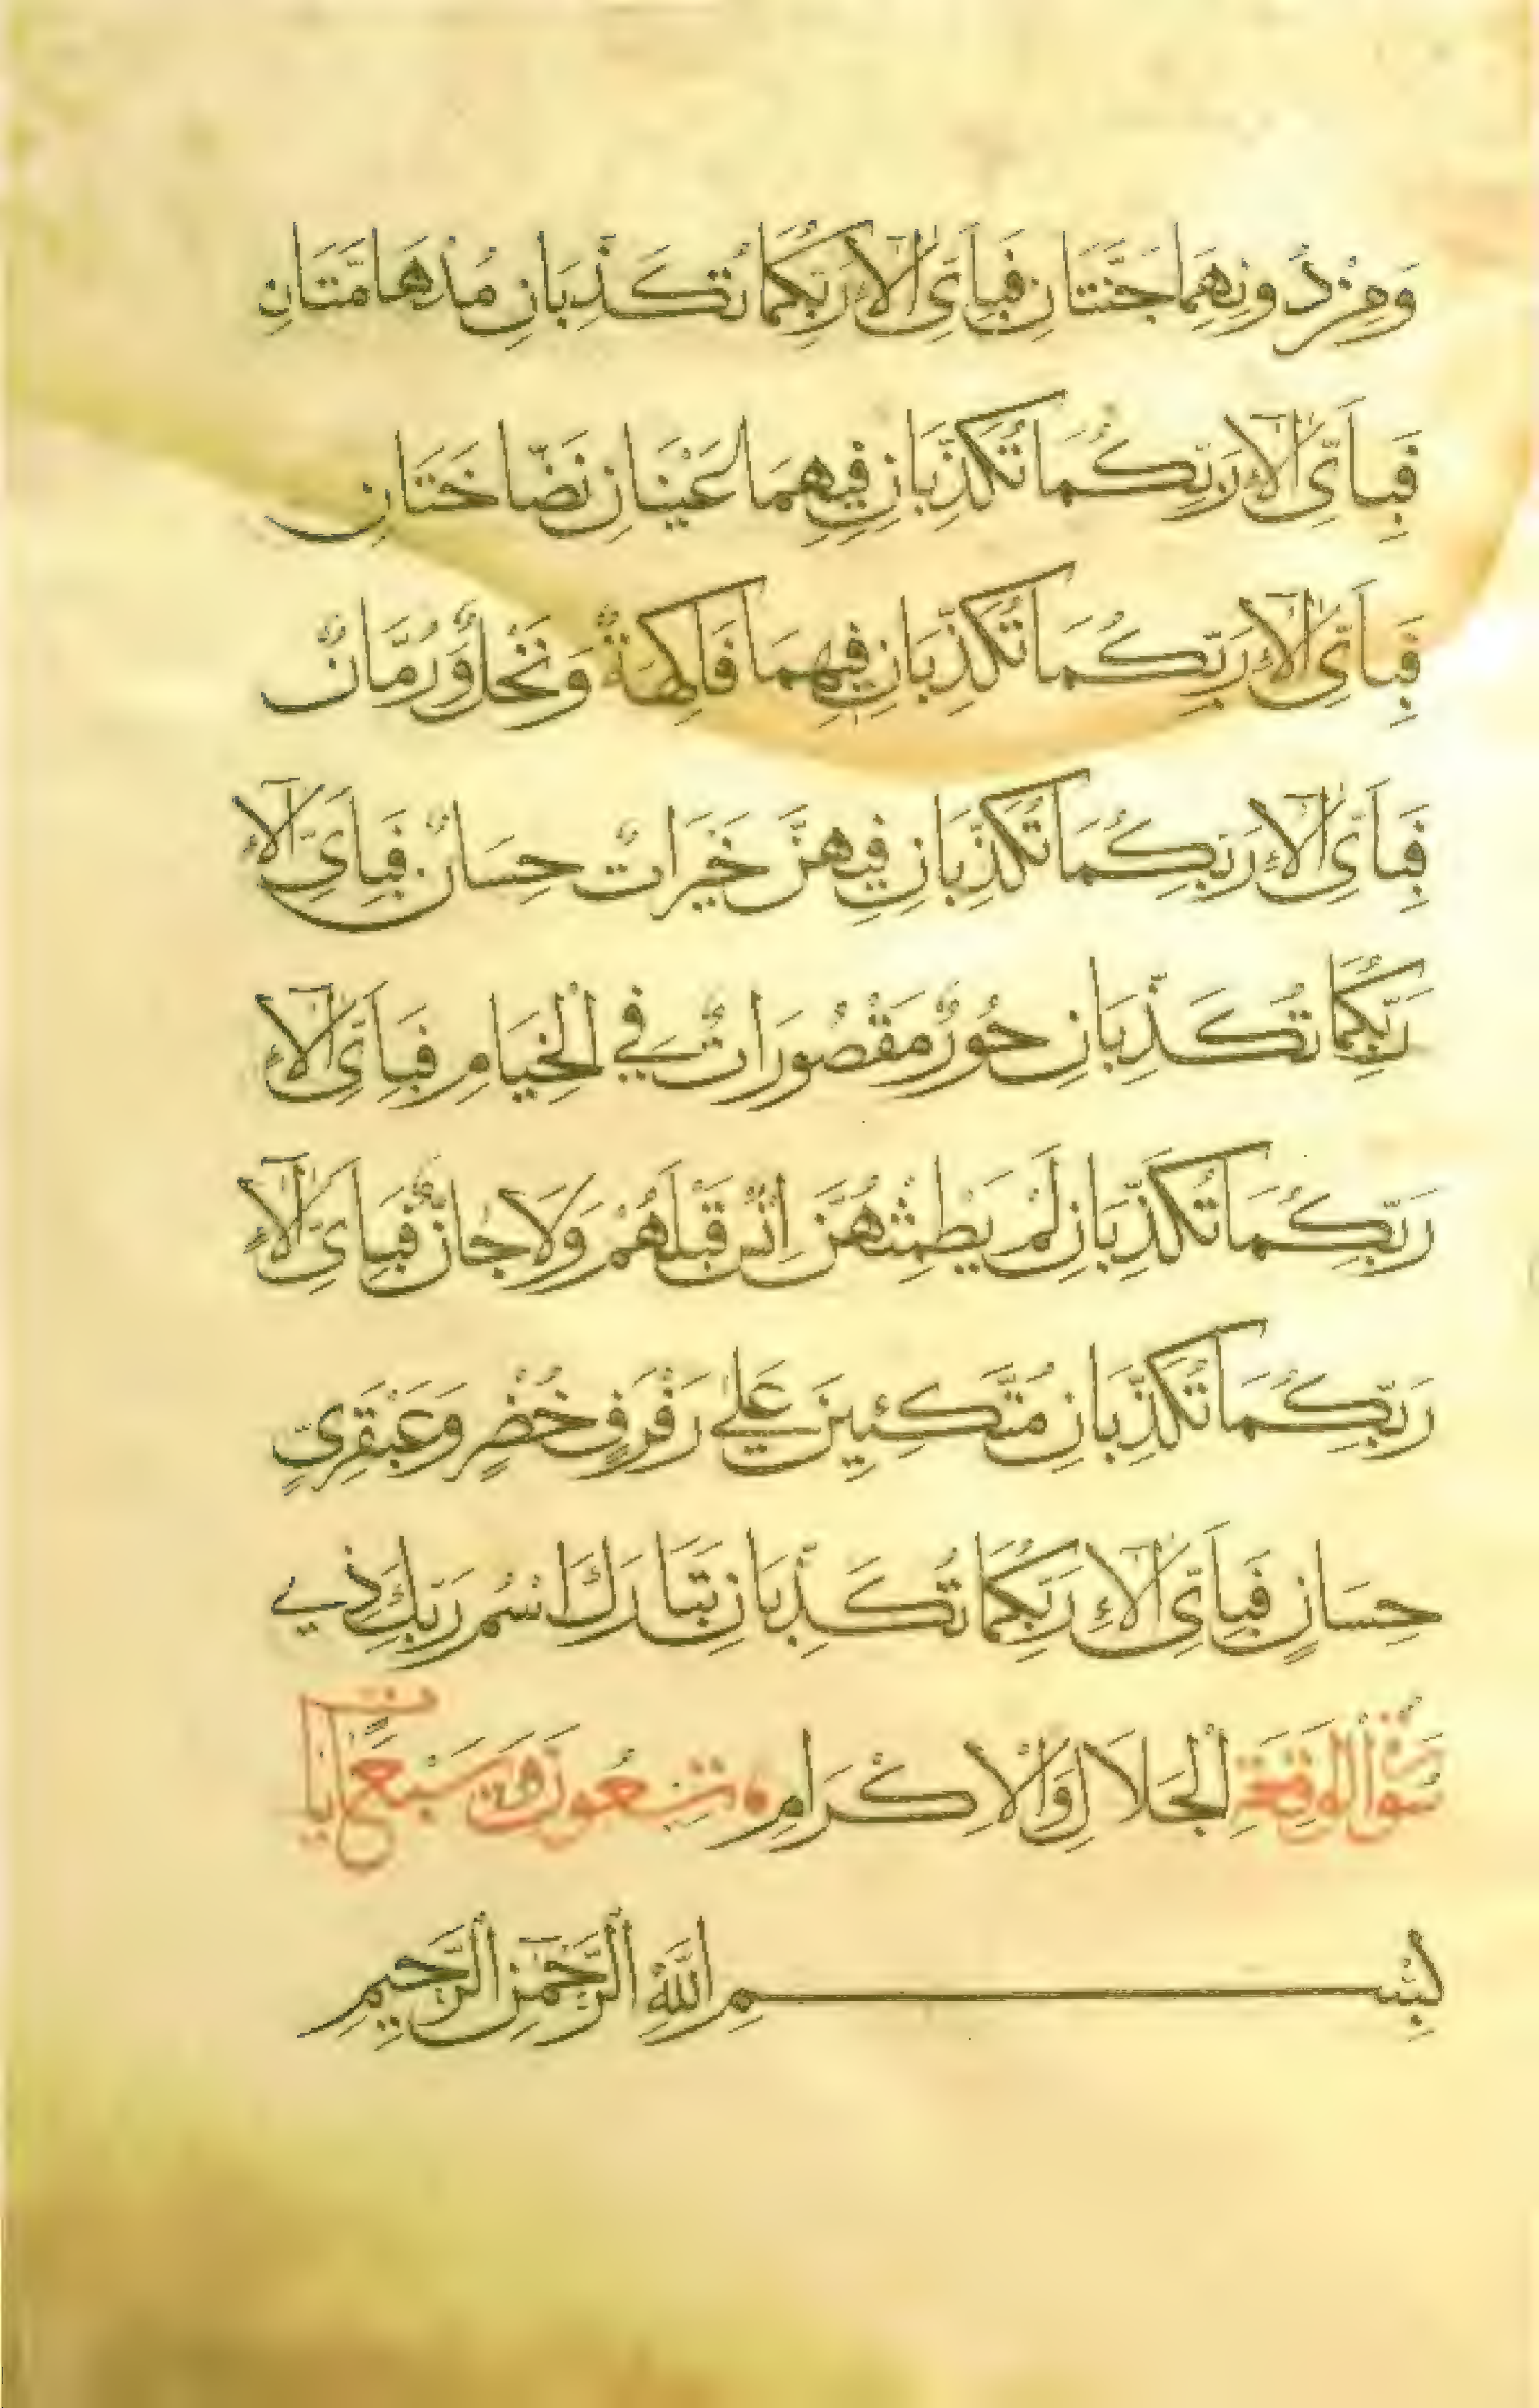 وَمِنْ دُونِهِمَا جَنَّتَانِ فَبِأَيِّ اٰلَاءِ رَبِّكُمَا تُكَذِّبَانِ مُدْهَامَّتَانِ
فَبِأَيِّ اٰلَاءِ رَبِّكُمَا تُكَذِّبَانِ فِيهِمَا عَيْنَانِ نَضَّاخَتَانِ
فَبِأَيِّ اٰلَاءِ رَبِّكُمَا تُكَذِّبَانِ فِيهِمَا فَاكِهَةٌ وَنَخْلٌ وَرُمَّانٌ
فَبِأَيِّ اٰلَاءِ رَبِّكُمَا تُكَذِّبَانِ فِيهِنَّ خَيْرَاتٌ حِسَانٌ فَبِأَيِّ اٰلَاءِ
رَبِّكُمَا تُكَذِّبَانِ حُورٌ مَقْصُورَاتٌ فِي الْخِيَامِ فَبِأَيِّ اٰلَاءِ
رَبِّكُمَا تُكَذِّبَانِ لَمْ يَطْمِثْهُنَّ اِنْسٌ قَبْلَهُمْ وَلَا جَانٌّ فَبِأَيِّ اٰلَاءِ
رَبِّكُمَا تُكَذِّبَانِ مُتَّكِئِينَ عَلَى رَفْرَفٍ خُضْرٍ وَعَبْقَرِيٍّ
حِسَانٍ فَبِأَيِّ اٰلَاءِ رَبِّكُمَا تُكَذِّبَانِ تَبَارَكَ اسْمُ رَبِّكَ ذِي
سُورَةُ الْوَاقِعَةِ الْجَلَالِ وَالْاِكْرَامِ تِسْعُونَ وَسَبْعُ اٰيَاتٍ
بِسْمِ اللّٰهِ الرَّحْمٰنِ الرَّحِيمِ